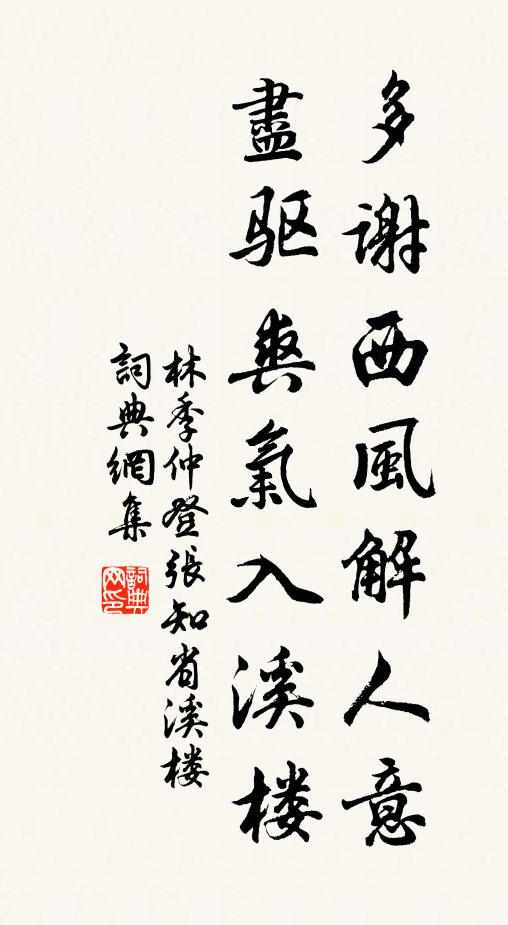 多谢西風解人意
盡驱爽氣入溪楼
林季仲登張知省溪楼
詞典網集
詞典网印